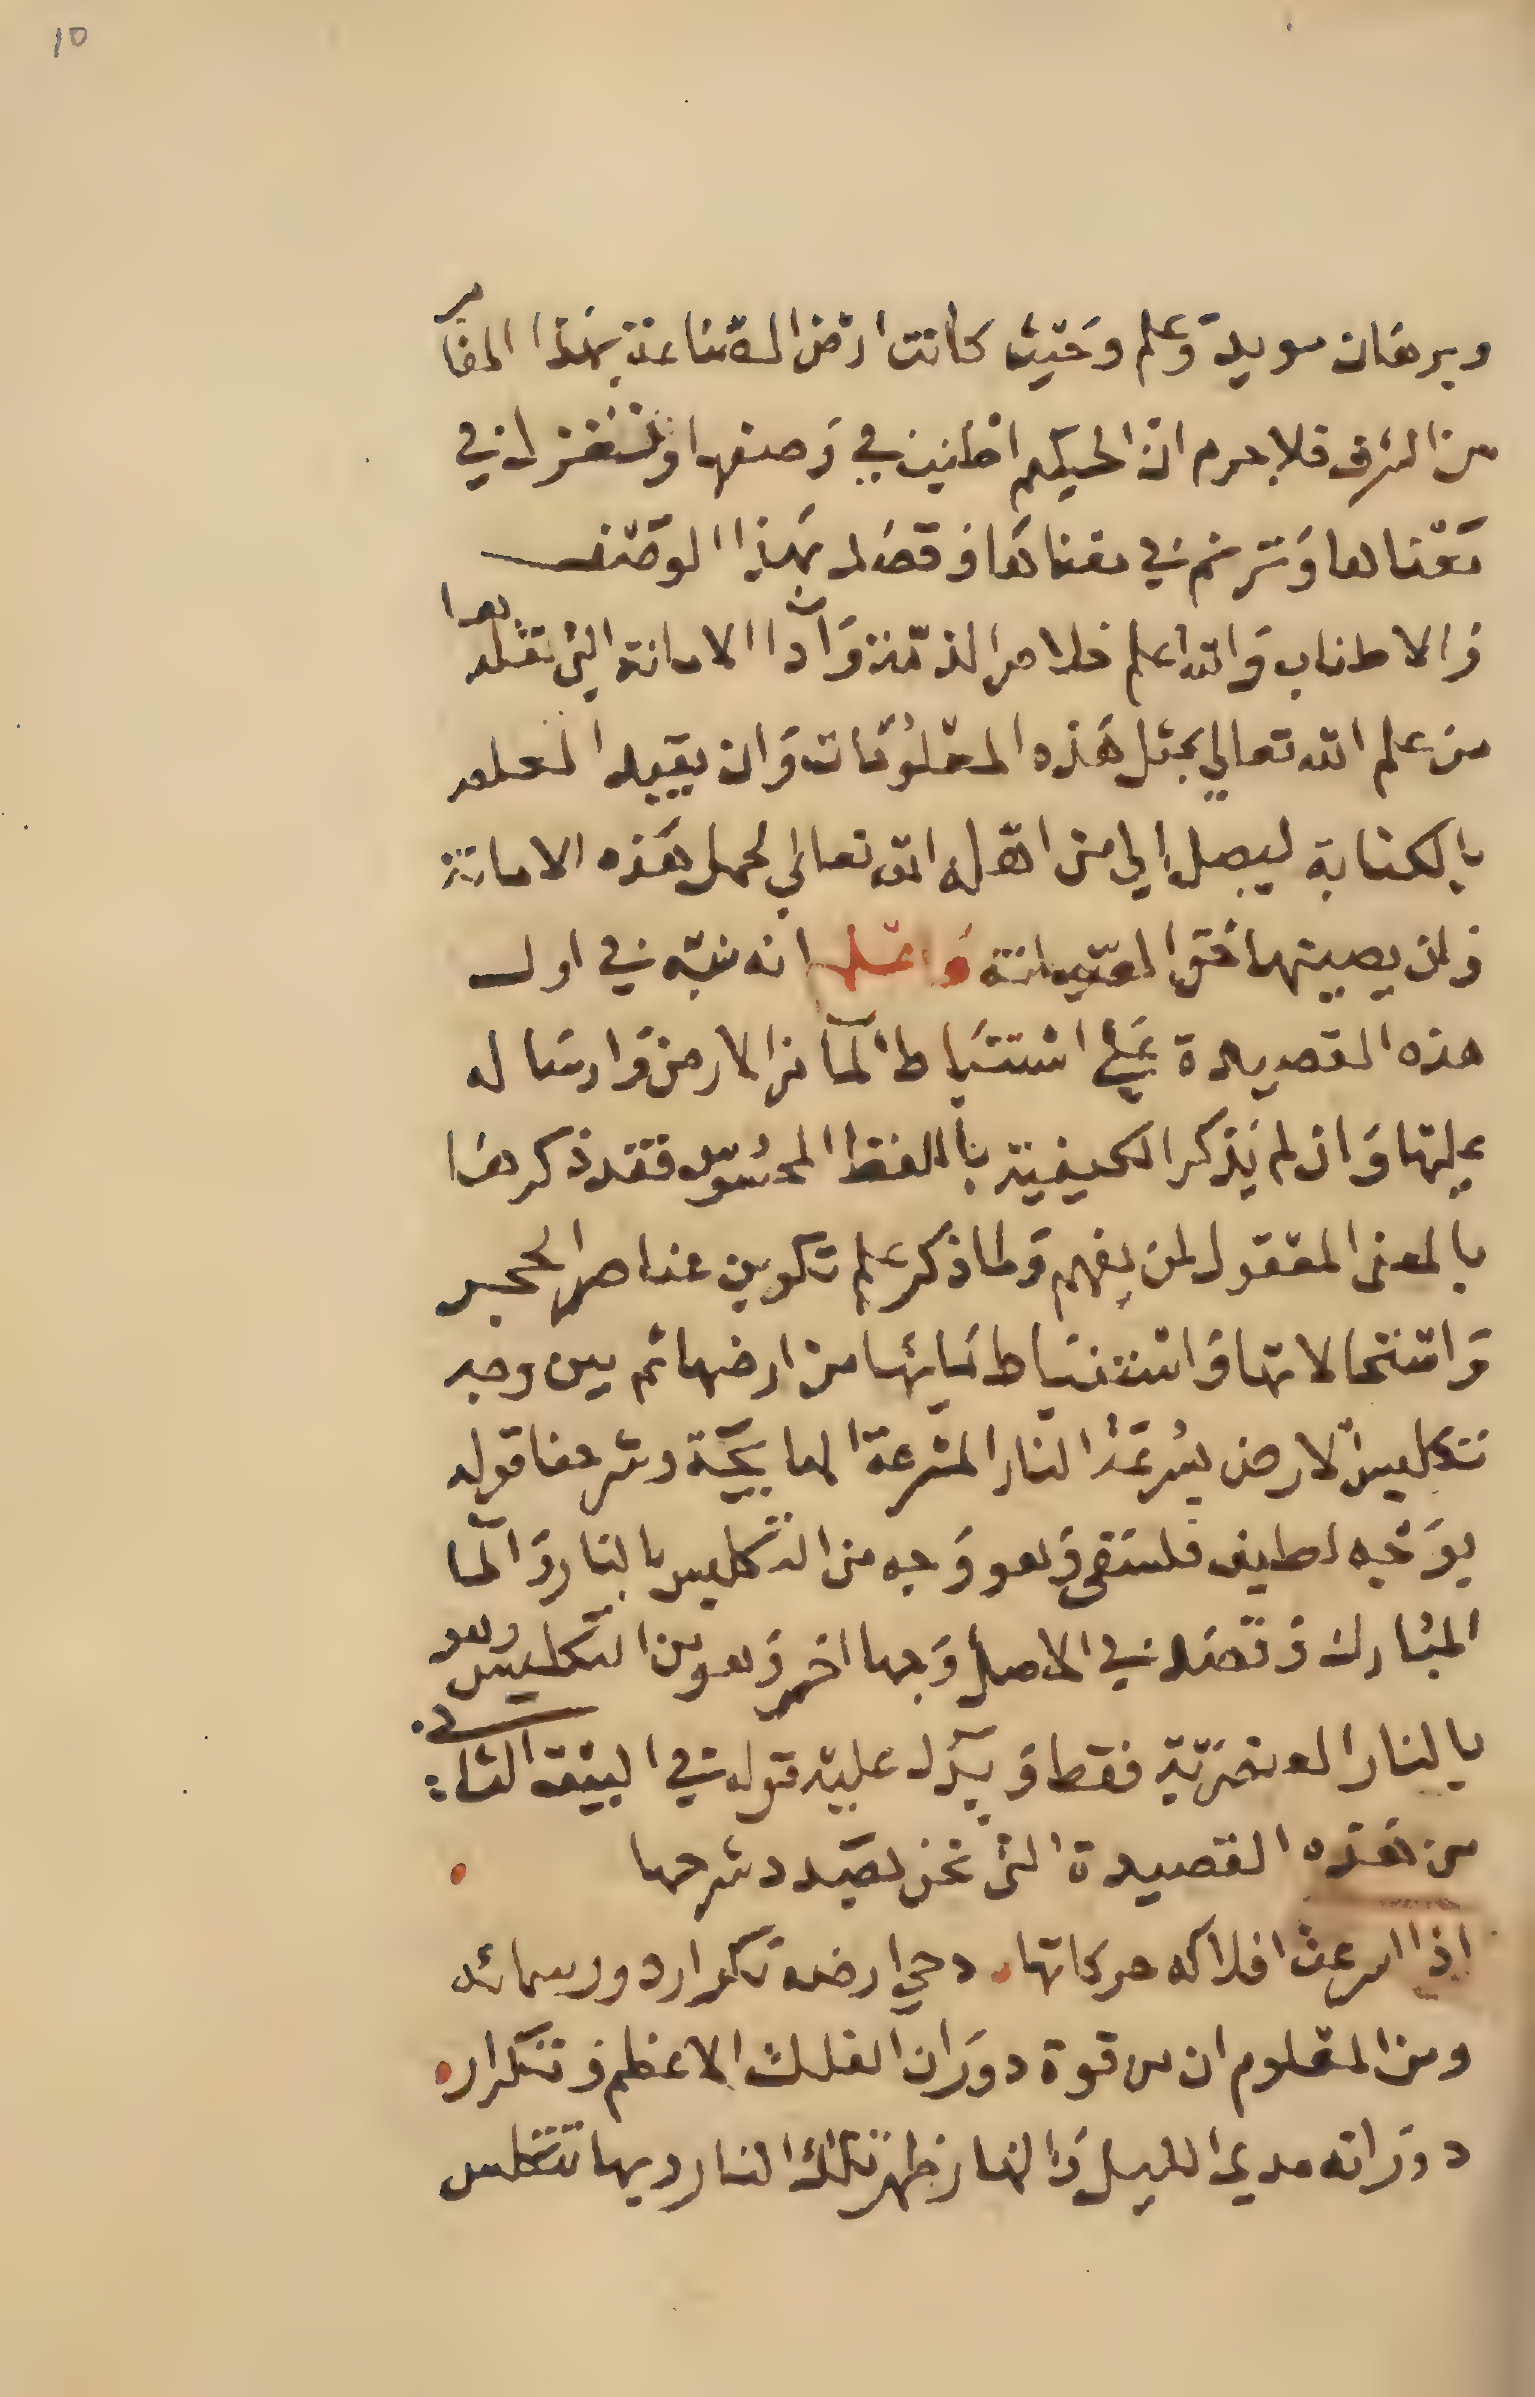 ١٥
وبرهان مويد وعلم وحيث كانت ارض الصناعة بهذا المقام
من الشرف فلا جرم ان الحكيم اطنب في وصفها وتغزل في
معناها وترنم في مغناها وقصد بهذا الوصف
والاطناب والله اعلم خلاص الذمة وادا الامانة التي تقلدها
من علم الله تعالي بمثل هذه المخلوقات وان يقيد العلم
بالكتابة ليصل الي من اهله الله تعالي لحمل هذه الامانة
وان يصينها حق الصيانة واعلم انه نبه في اول
هذه القصيدة علي استنباط الما من الارض وارساله
عليها وان لم يذكر الكيفية باللفظ المحسوس فقد ذكرها
بالمعني المعقول لمن يفهم ولما ذكر علم تكوين عناصر الحجر
واستحالاتها واستنباط مايها من ارضها ثم بين وجه
تكليس الارض بسرعة النار المسرعة لها بحية وشرحنا قوله
بوجه لطيف فلسفي وهو وجه من التكليس بالنار والما
المبارك وقصد في الاصل وجها اخر وهو من التكليس وهو
بالنار العنصرية فقط ويدل عليه قوله في البيت الثاني
من هذه القصيدة التي نحن بصدد شرحها
اذا اسرعت افلاكه حركاتها دحي ارضه تكرار دور سمائه
ومن المعلوم ان من قوة دوران الفلك الاعظم وتكرار
دورانه مدي الليل والنهار ظهر تلك النار وبها تتكلس